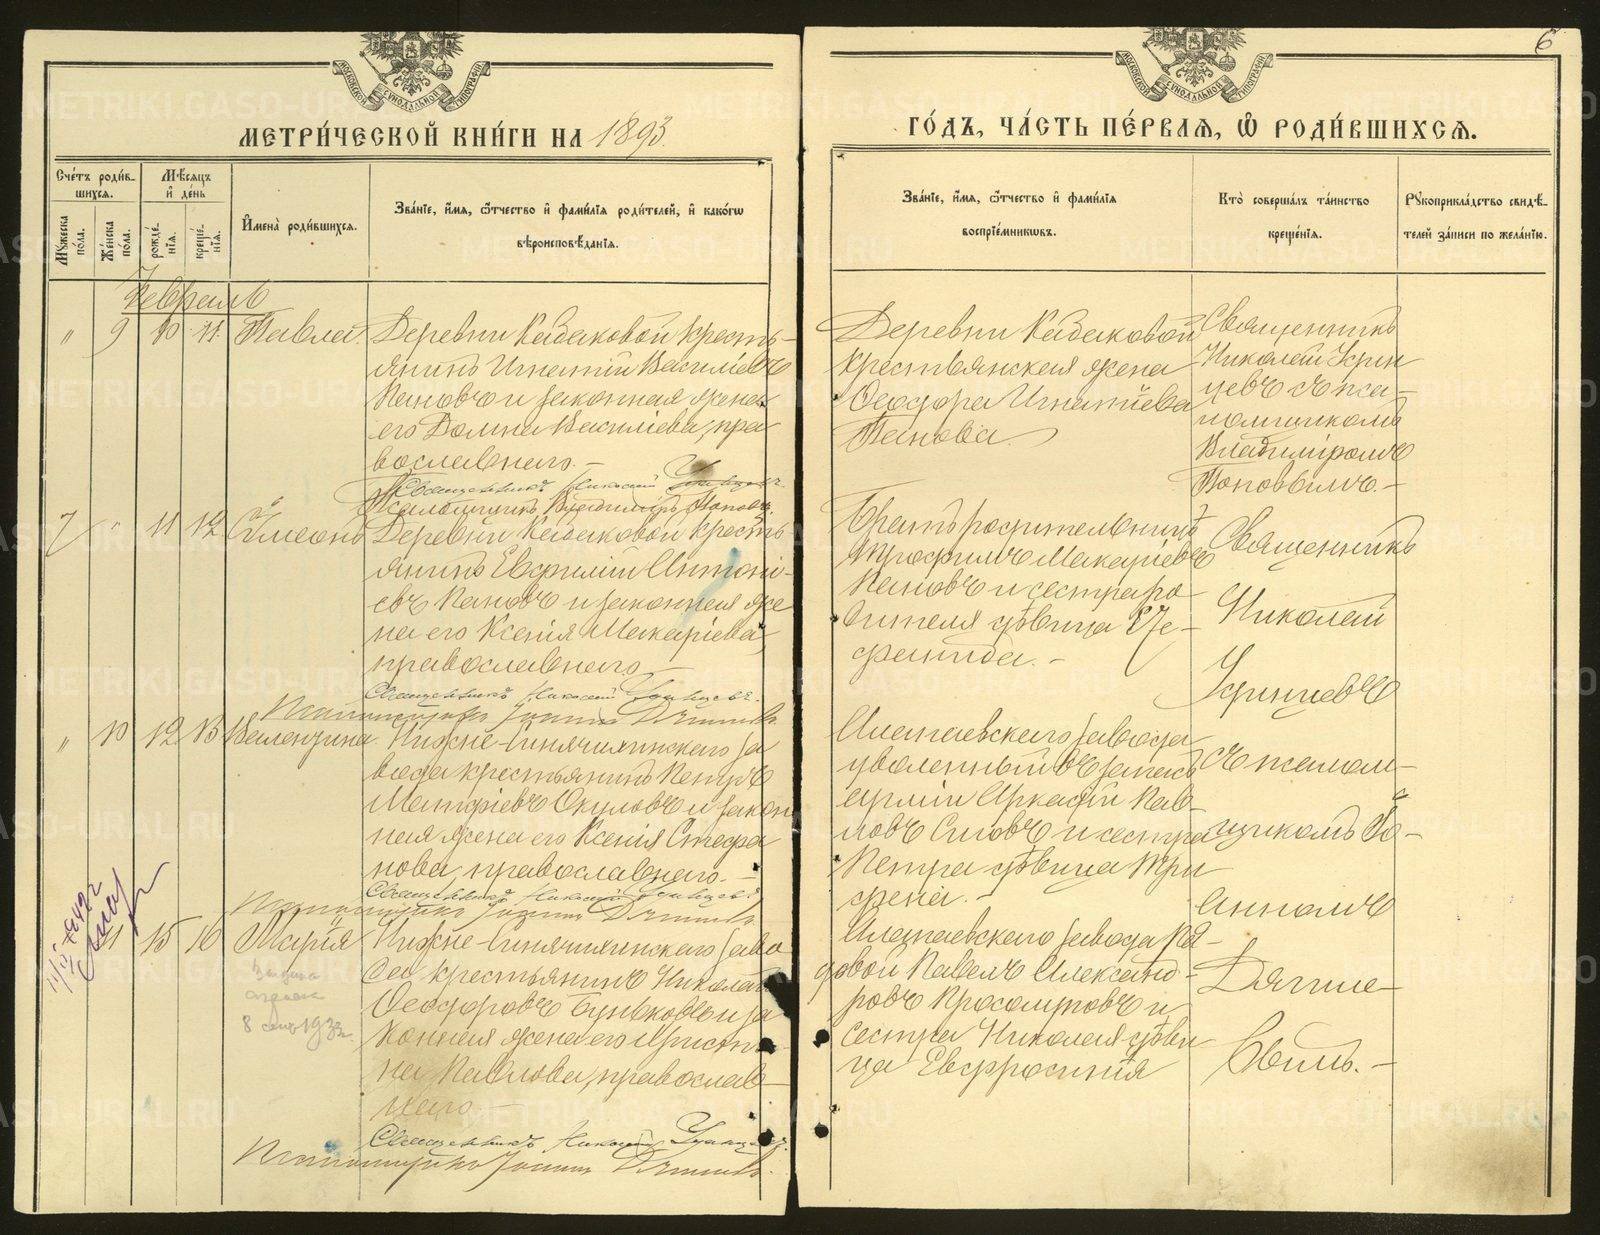 МЕТРИ́ЧЕСКОЙ КНИ́ГИ НА 1893
Сче́тъ роди́в-
шихся.
Мѣ́сяцъ
и де́нь
Мꙋ́жеска
по́ла.
Же́нска
по́ла.
рожде́-
нїя.
креще́-
нїя.
И҆мена̀ роди́вшихся.
Зва́нїе, и҆́мя, ѻ҆́тчество и҆ фами́лїя роди́телей, и҆ како́гѡ
вѣроисповѣ́данїя.
Февраль
" 9 10 11. Павла.
Деревни Кабаковой кресть-
янинъ Игнатій Василіевъ
Пановъ и законная жена
его Домна Василіева, пра
вославнаго. -
Священникъ Николай Удинцевъ.
Псаломщикъ Владиміръ Поповъ.
7 " 11 12 Симеонъ
Деревни Кабаковой кресть-
янинъ Евфимій Антоні-
евъ Пановъ и законная же
на его Ксенія Макаріева,
православнаго. -
Священникъ Николай Удинцевъ.
Псаломщикъ Іоаннъ
" 10 12 13 Валентина.
Нижне-Синячихинскаго за
вода крестьянинъ Петръ
Матфіевъ Окуловъ и закон
ная жена его Ксенія Стефа
нова, православнаго. -
Священникъ Николай Удинцевъ
Псаломщикъ Іоаннъ
" 11 15 16 Марія
Нижне-Синячихинскаго заво
да крестьянинъ Николай
Ѳеодоровъ Буньковъ и за
конная жена его Христи-
на Павлова, православ-
наго. -
Священникъ Николай Удинцевъ.
Псаломщикъ Іоаннъ
8 1933г.
6
ГО́ДЪ, ЧА́СТЬ ПЕ́РВАЯ, Ѽ РОДИ́ВШИХСЯ.
Зва́нїе, и҆́мя, ѻ҆́тчество и҆ фами́лїя
воспрїе́мникѡвъ.
Кто̀ соверша́лъ та́инство
креще́нїя.
Рꙋкоприкла́дство свидѣ́-
телей за́писи по жела́нїю.
Деревни Кабаковой
крестьянская жена
Ѳеодора Игнатіева
Панова.
Священникъ
Николай Удин
цевъ съ пса-
ломщикомъ
Владиміромъ
Поповымъ. -
Братъ родительницы
Трофимъ Макаріевъ
Пановъ и сестра ро
дителя дѣвица
Священникъ
Николай
Удинцевъ
Алапаевскаго завода
уволенный въ запасъ
арміи Аркадій Пав-
ловъ Сысовъ и сестра
Петра дѣвица Три
фена. -
съ псалом-
щикомъ Іо-
анномъ
Алапаевскаго завода ря-
довой Павелъ Александ-
ровъ и
сестра Николая дѣви
ца Евфросинія